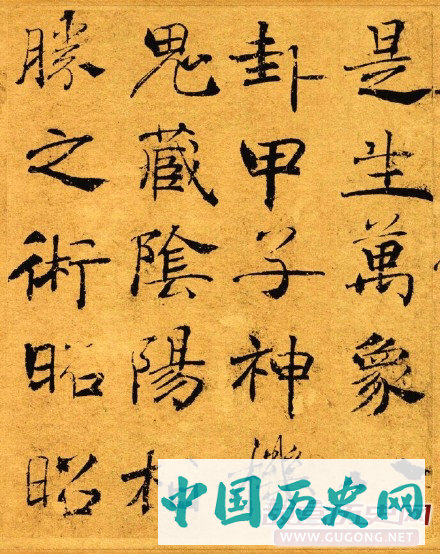 是生萬象
卦甲子神機
鬼藏陰陽
勝之術昭昭
中国历史网
WWW.GUGONG.NET